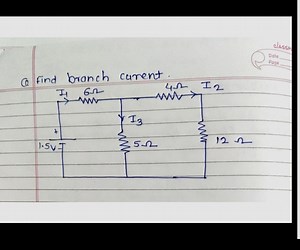 Classm
Date
Page
Q find branch current.
I1 6Ω 4Ω I2
I3
1.5V 5Ω 12Ω